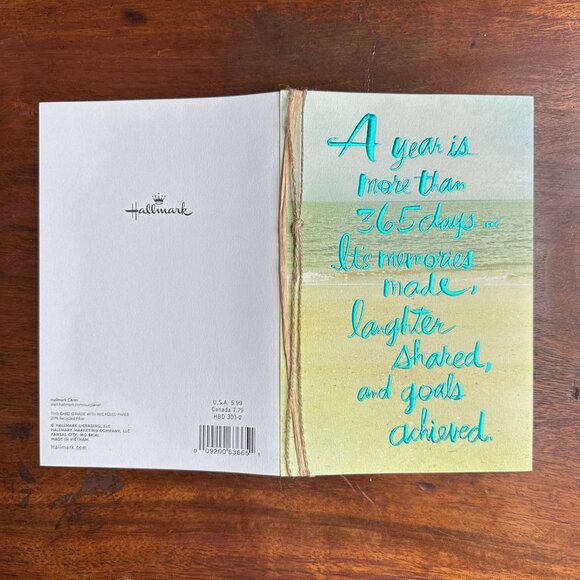 Hallmark
Hallmark Cares
THIS CARD IS MADE WITH RECYCLED PAPER
20% Recycled Fiber
© HALLMARK LICENSING, LLC
HALLMARK MARKETING COMPANY, LLC
KANSAS CITY, MO 64141
MADE IN VIETNAM
Hallmark.com
U.S.A. 5.99
Canada 7.79
HBD 303-2
A year is
more than
365 days ...
It's memories
made,
laughter
shared,
and goals
achieved.